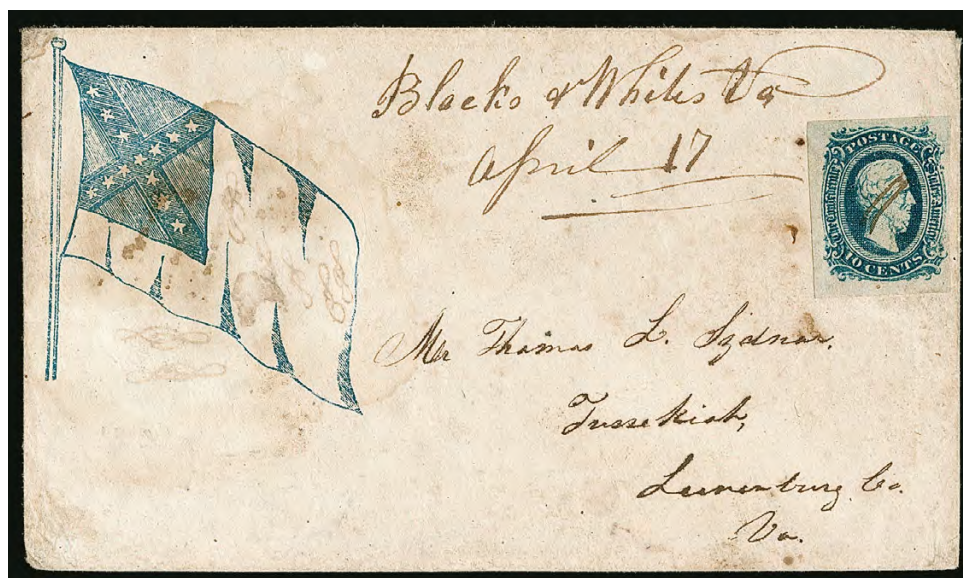 Blacks & Whites Va
April 17
POSTAGE
The Confederate States of America
10 CENTS
Mr Thomas L. Sydnor.
Tussekiah,
Lunenburg Co.
Va.